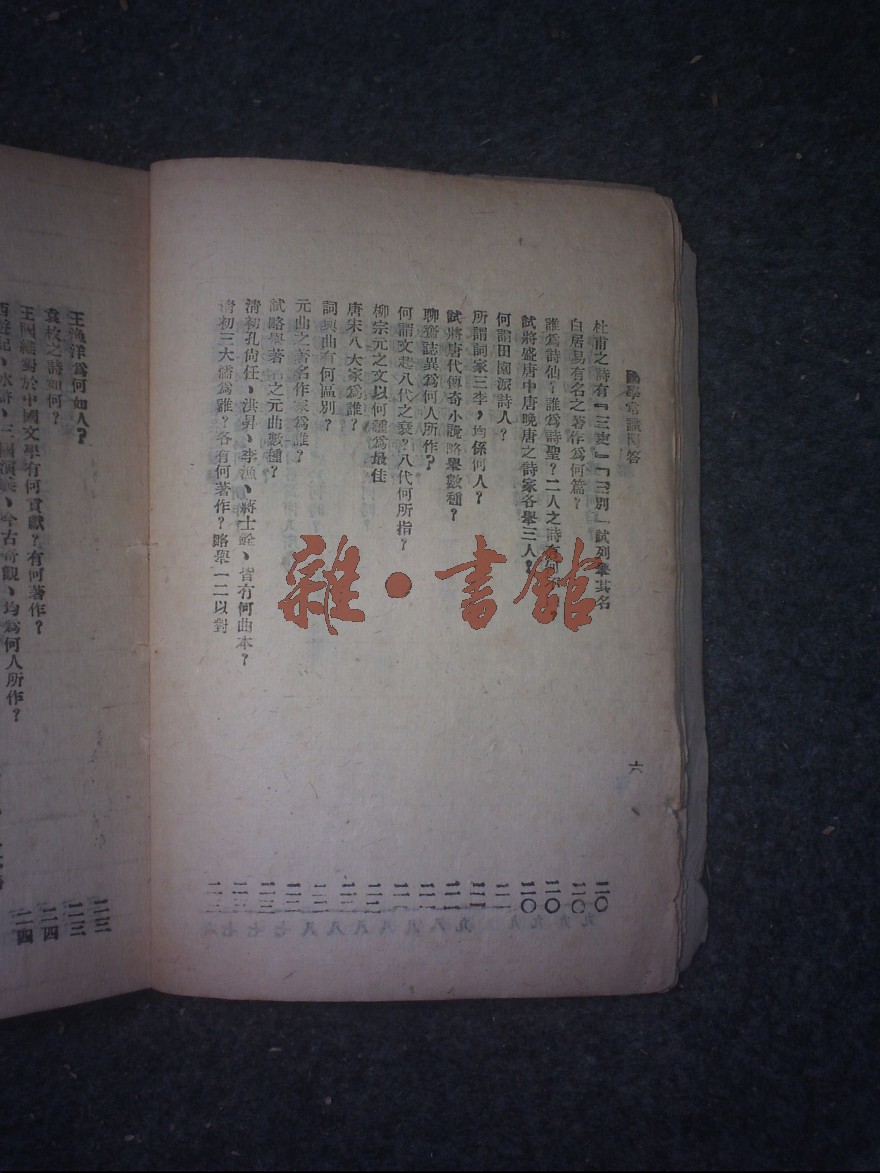 國學常識問答
六
杜甫之詩有『三吏』『三別』試列舉其名 二〇
白居易有名之著作爲何篇？ 二〇
誰爲詩仙？誰爲詩聖？二人之詩有何 二〇
試將盛唐中唐晚唐之詩家各舉三人？ 二〇
何謂田園派詩人？
所謂詞家三李，均係何人？
試將唐代傳奇小說略舉數種？
聊齋誌異爲何人所作？
何謂文起八代之衰？八代何所指？
柳宗元之文以何種爲最佳
唐宋八大家爲誰？
詞與曲有何區別？
元曲之著名作家爲誰？
試略舉著名之元曲數種？
清初孔尚任、洪昇、李漁、蔣士銓、皆有何曲本？
清初三大儒爲誰？各有何著作？略舉一二以對
王漁洋爲何如人？ 二三
袁枚之詩如何？ 二三
王國維對於中國文學有何貢獻？有何著作？ 二四
西遊記、水滸、三國演義、今古奇觀、均爲何人所作？ 二四
雜·書館